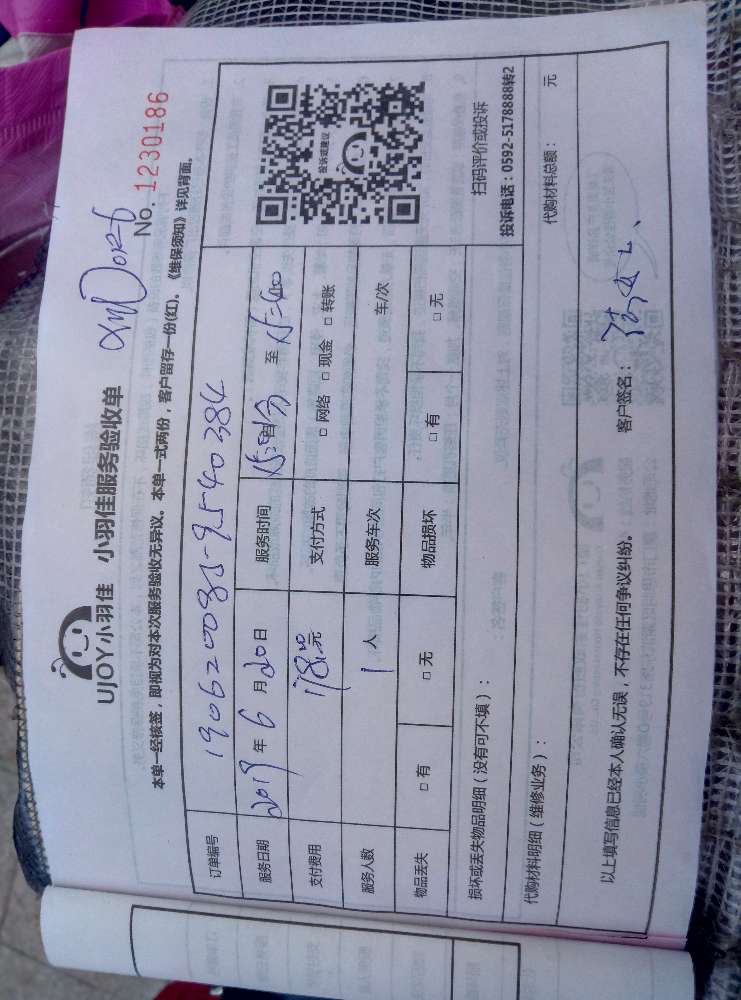 UJOY小羽佳 小羽佳服务验收单
No. 1230186
本单一经核签，即视为对本次服务验收无异议。本单一式两份，客户留存一份(红)。《维保须知》详见背面。
订单编号 190620085-9540384
服务日期 2019年6月20日 服务时间 至
支付费用 178元 支付方式 □ 网络 □ 现金 □ 转账
服务人数 1人 服务车次 车/次
物品丢失 □ 有 □ 无 物品损坏 □ 有 □ 无
投诉或建议
扫码评价或投诉
投诉电话：0592-5178888转2
损坏或丢失物品明细（没有可不填）：
代购材料明细（维修业务）： 代购材料总额： 元
以上填写信息已经本人确认无误，不存在任何争议纠纷。 客户签名：